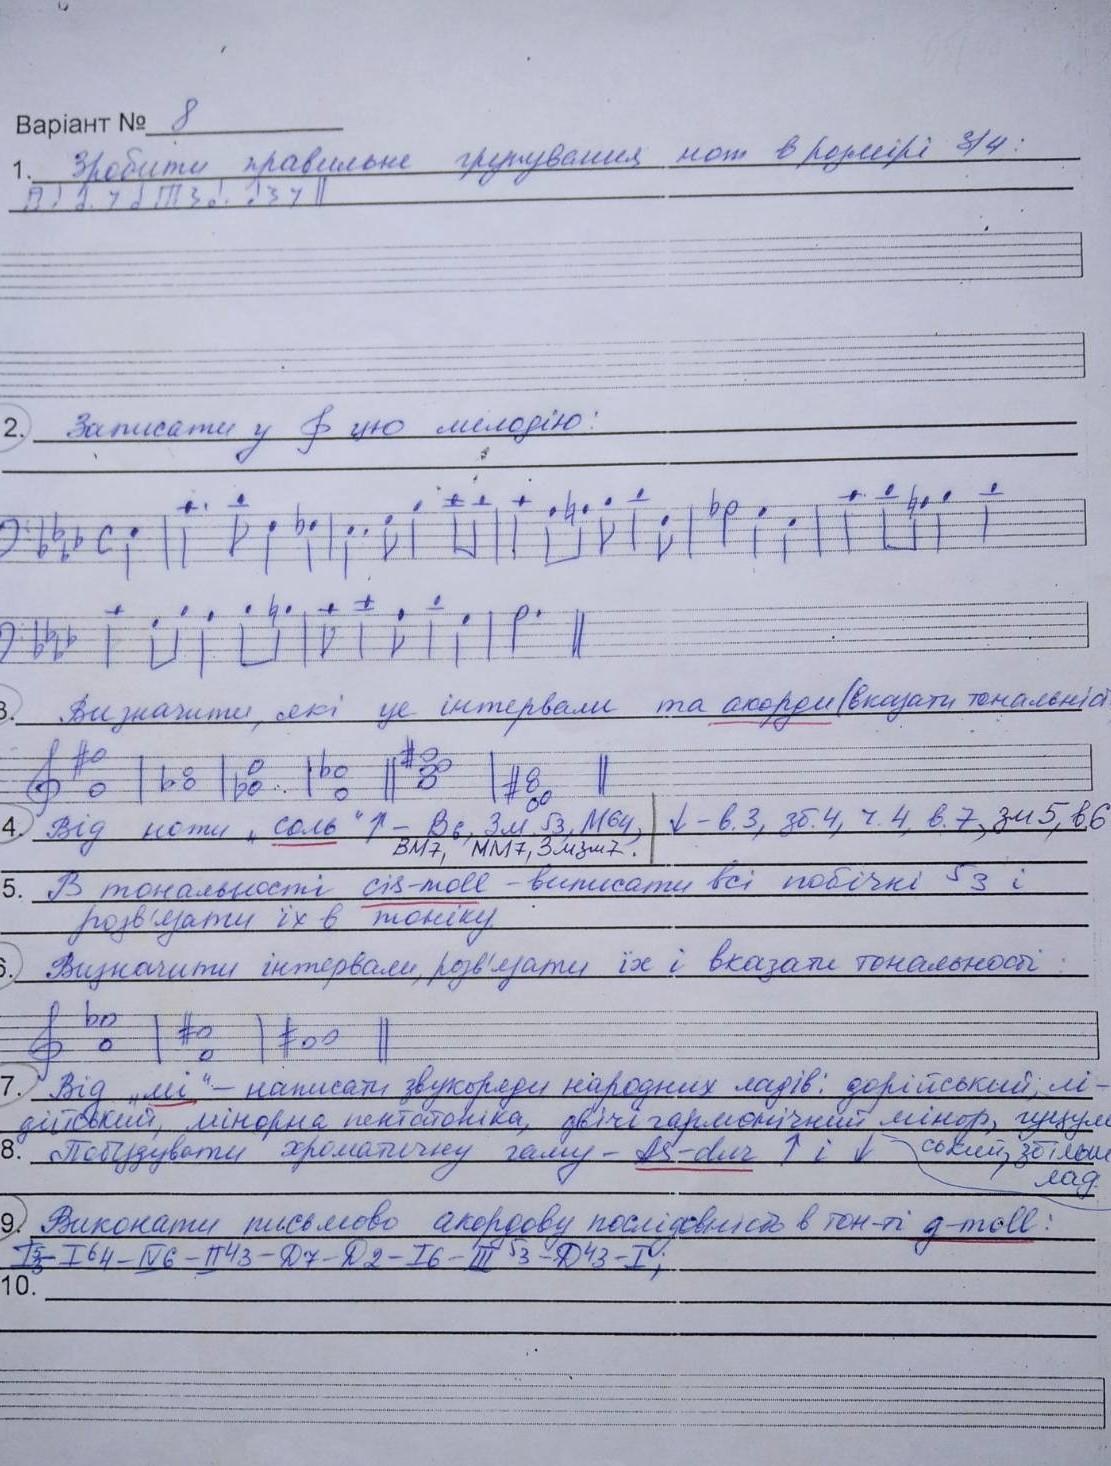 Варіант № 8
1. Зробити правильне групування нот в розмірі 3/4:
2. Записати у 𝄞 цю мелодію:
3. Визначити, які це інтервали та акорди (вказати тональніст
4. Від ноти „соль" ↑ – В6, Зм 53, М64, | ↓ – в.3, зб.4, ч.4, в.7, зм5, в6
ВМ7, ММ7, Змзм7.
5. В тональності cis-moll – виписати всі побічні 53 і
розв'язати їх в тоніку
6. Визначити інтервали, розв'язати їх і вказати тональності:
7. Від „мі" – написати звукоряди народних ладів: дорійський, лі-
дійський, мінорна пентатоніка, двічі гармонічний мінор, гуцуль
ський, збільш
лад.
8. Побудувати хроматичну гаму – As-dur ↑ і ↓
9. Виконати письмово акордову послідовність в тон-ті g-moll:
I53 – I64 – IV6 – II43 – Д7 – Д2 – I6 – III53 – Д43 – I;
10.